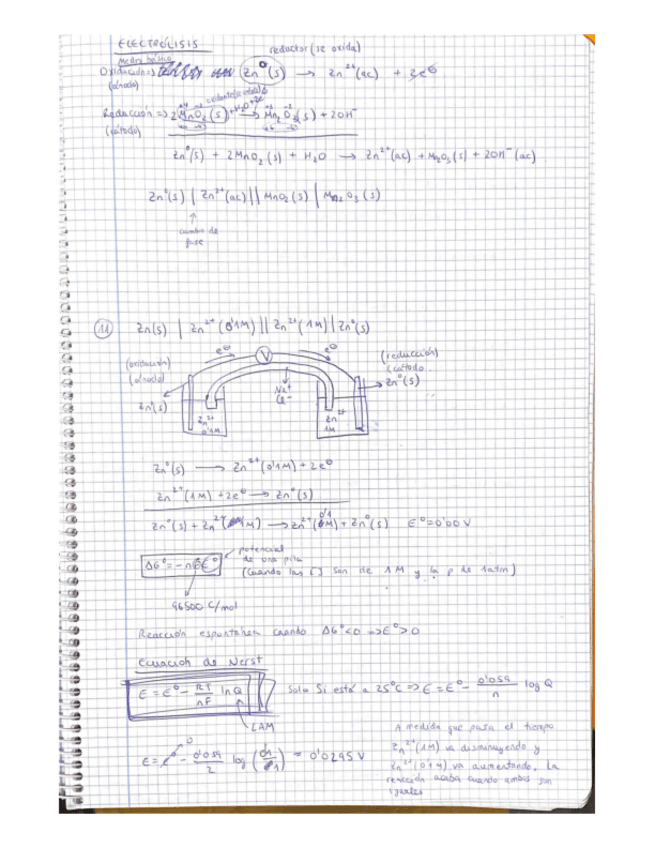 ELECTRÓLISIS
reductor (se oxida)
Medio básico
Oxidación => Zn⁰(s) → Zn²⁺(ac) + 2e⊖
(ánodo)
oxidante (se reduce)
Reducción => 2MnO₂(s) + H₂O + 2e → Mn₂O₃(s) + 2OH⁻
(cátodo)
Zn⁰(s) + 2MnO₂(s) + H₂O → Zn²⁺(ac) + Mn₂O₃(s) + 2OH⁻(ac)
Zn⁰(s) | Zn²⁺(ac) || MnO₂(s) | Mn₂O₃(s)
↑
cambio de
fase
11 Zn(s) | Zn²⁺(0'1M) || Zn²⁺(1M) | Zn⁰(s)
(oxidación)
(ánodo)
e⊖ V e⊖
(reducción)
(cátodo
Zn⁰(s)
Zn⁰(s)
Na⁺
Cl⁻
Zn²⁺
0'1M
Zn²⁺
1M
Zn⁰(s) → Zn²⁺(0'1M) + 2e⊖
Zn²⁺(1M) + 2e⊖ → Zn⁰(s)
Zn⁰(s) + Zn²⁺(1M) → Zn²⁺(0'1M) + Zn⁰(s) E⁰=0'00V
ΔG⁰ = -nFE⁰
potencial
de una pila
(Cuando las [] son de 1M y la p de 1atm)
96500 C/mol
Reacción espontánea cuando ΔG⁰<0 => E⁰>0
Ecuación de Nerst
E = E⁰ - RT/nF ln Q
LAM
Solo si está a 25°C => E = E⁰ - 0'059/n log Q
E = E⁰ - 0'059/2 log (0'1/1) = 0'0295 V
A medida que pasa el tiempo
Zn²⁺(1M) va disminuyendo y
Zn²⁺(0'1M) va aumentando. La
reacción acaba cuando ambos son
iguales